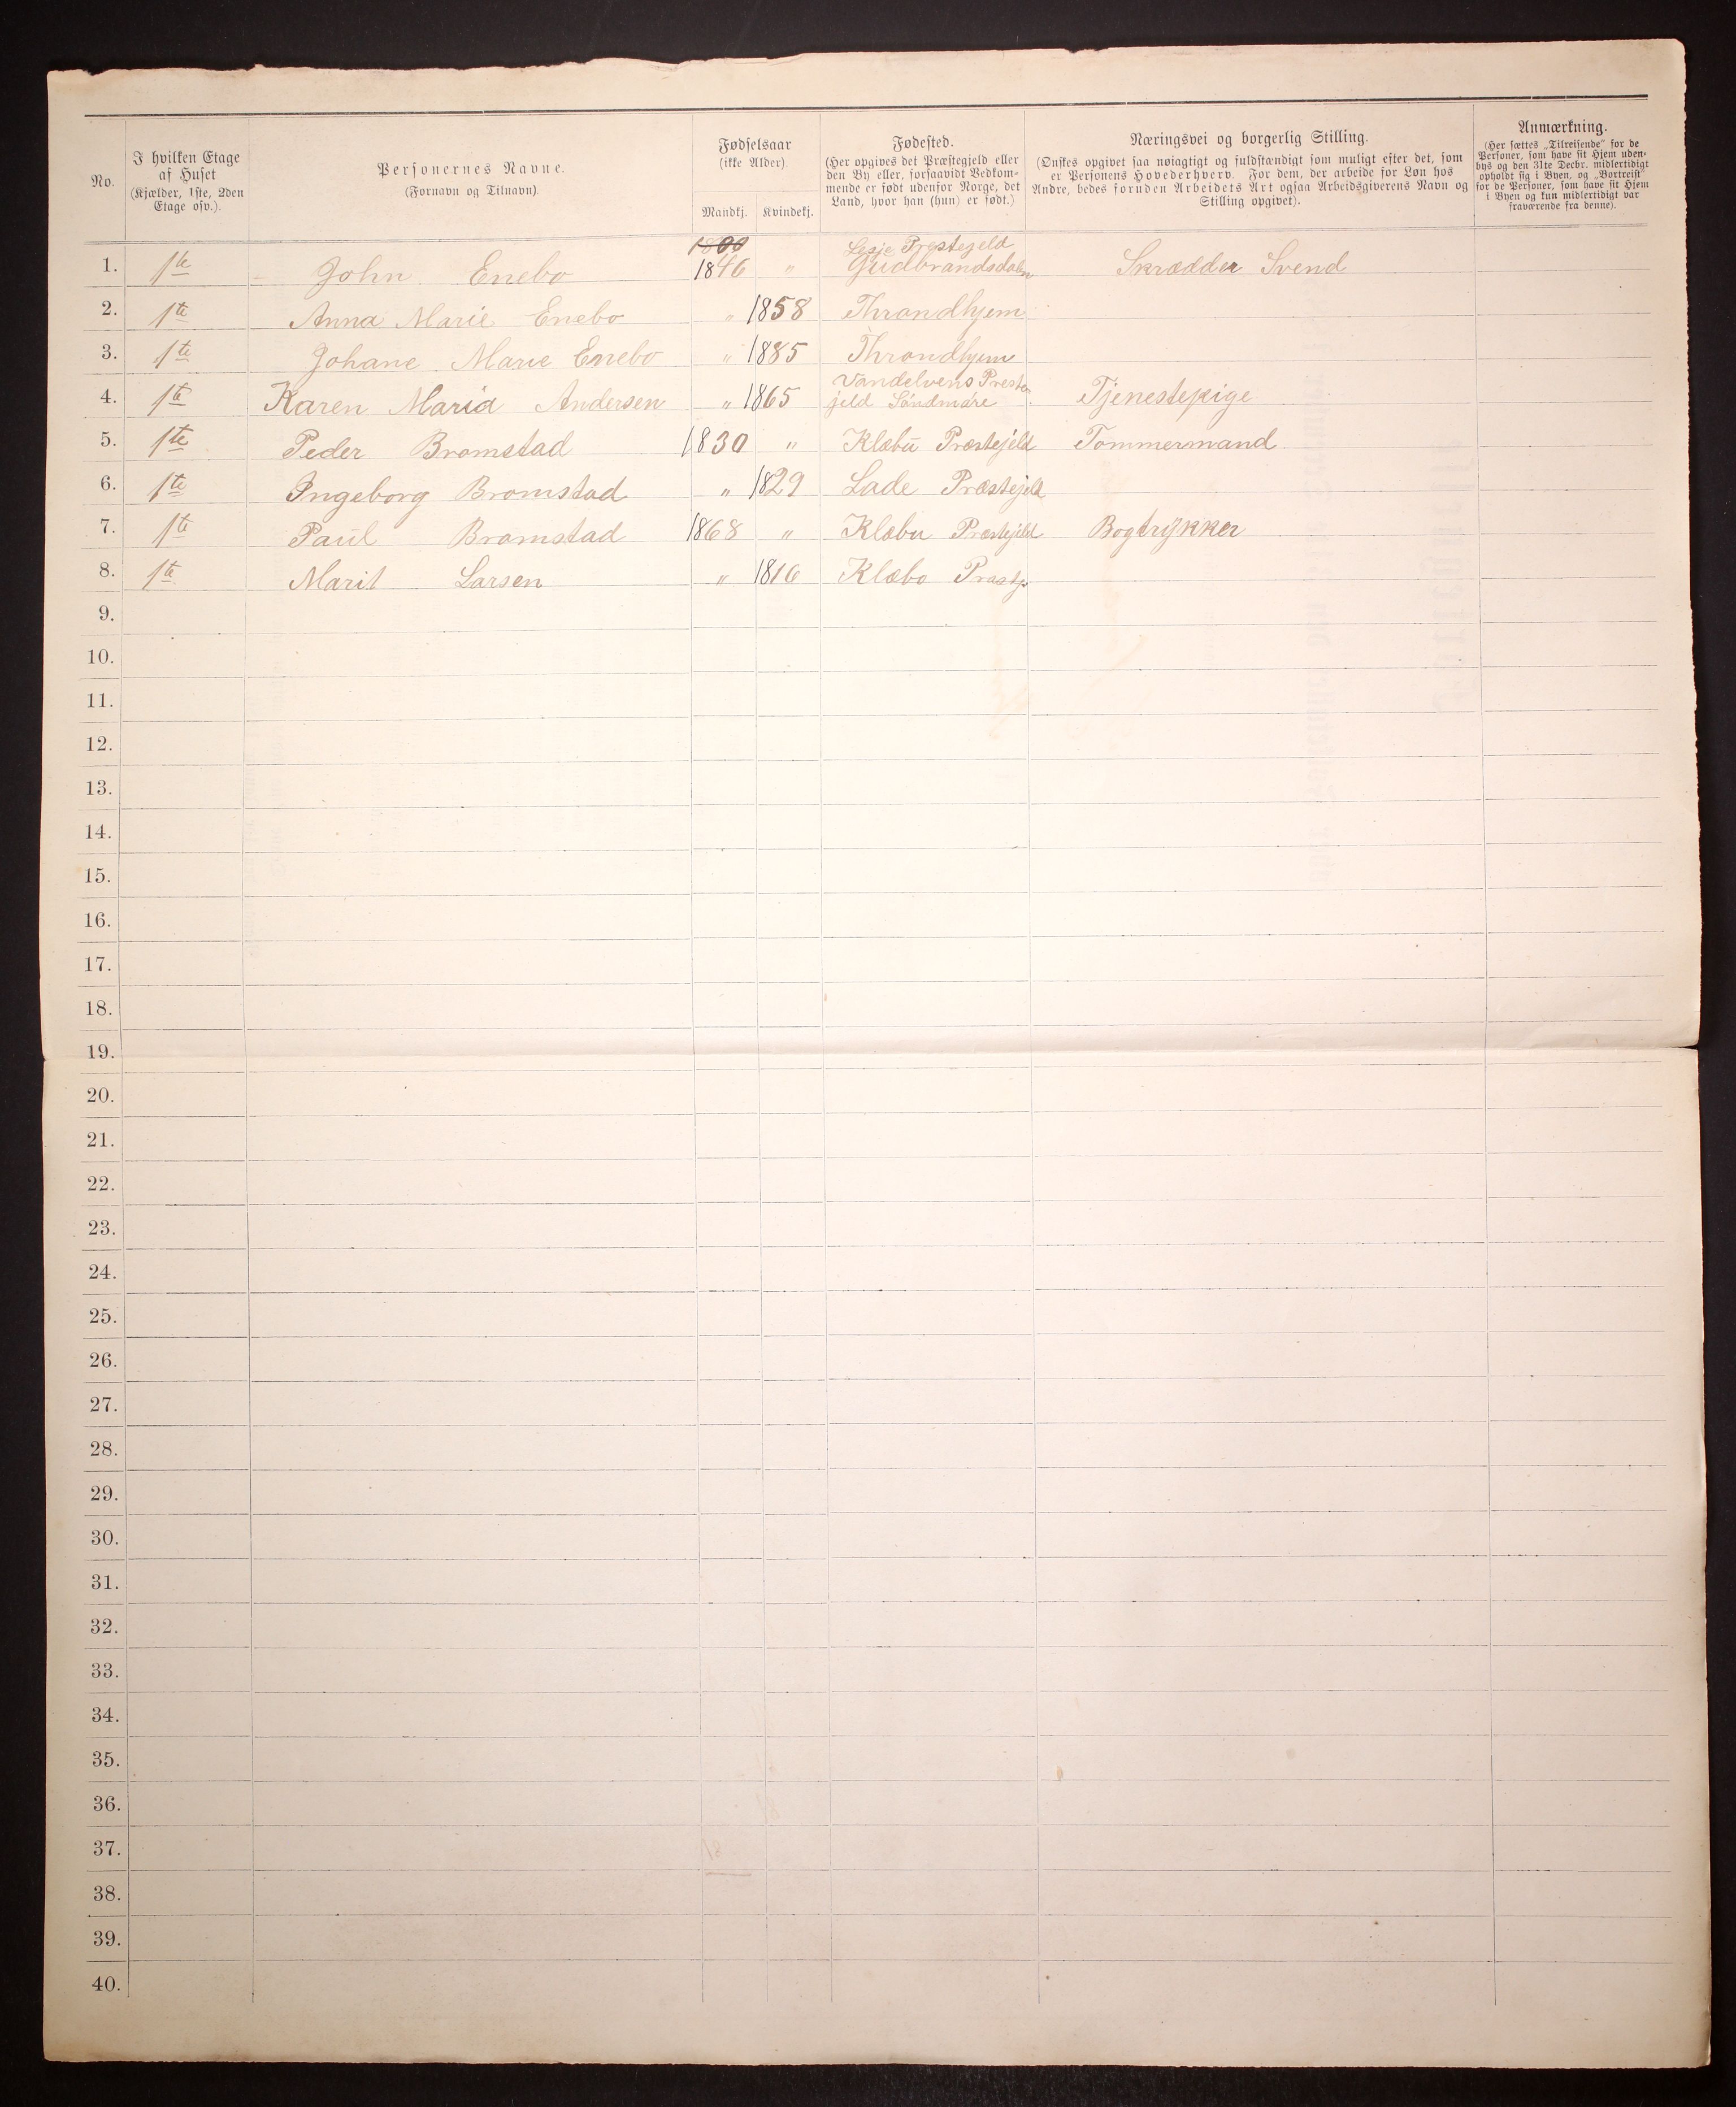 No.
I hvilken Etage
af Huset
(Kjælder, 1ste, 2den
Etage osv.).
Personernes Navne.
(Fornavn og Tilnavn).
Fødselsaar
(ikke Alder).
Mandkj. Kvindekj.
Fødested.
(Her opgives det Præstegjeld eller
den By eller, forsaavidt Vedkom-
mende er født udenfor Norge, det
Land, hvor han (hun) er født.)
Næringsvei og borgerlig Stilling.
(Ønskes opgivet saa nøiagtigt og fuldstændigt som muligt efter det, som
er Personens Hovederhverv. For dem, der arbeide for Løn hos
Andre, bedes foruden Arbeidets Art ogsaa Arbeidsgiverens Navn og
Stilling opgivet).
Anmærkning.
(Her sættes „Tilreisende" for de
Personer, som have sit Hjem uden-
bys og den 31te Decbr. midlertidigt
opholdt sig i Byen, og „Bortreist"
for de Personer, som have sit Hjem
i Byen og kun midlertidigt var
fraværende fra denne).
1800 Lesje Prestegjeld
1. 1te John Enebo 1846 " Gudbrandsdalen Skrædder Svend
2. 1te Anna Marie Enebo " 1858 Throndhjem
3. 1te Johane Marie Enebo " 1885 Throndhjem
Vandelvens Preste
4. 1te Karen Maria Andersen " 1865 gjeld Söndmöre Tjenestepige
5. 1te Peder Bromstad 1830 " Klæbu Præstejeld Tommermand
6. 1te Ingeborg Bromstad " 1829 Lade Præstejeld
7. 1te Paul Bromstad 1868 " Klæbu Præstejeld Bogtrykker
8. 1te Marit Larsen " 1816 Klæbo Præstgj
9.
10.
11.
12.
13.
14.
15.
16.
17.
18.
19.
20.
21.
22.
23.
24.
25.
26.
27.
28.
29.
30.
31.
32.
33.
34.
35.
36.
37.
38.
39.
40.